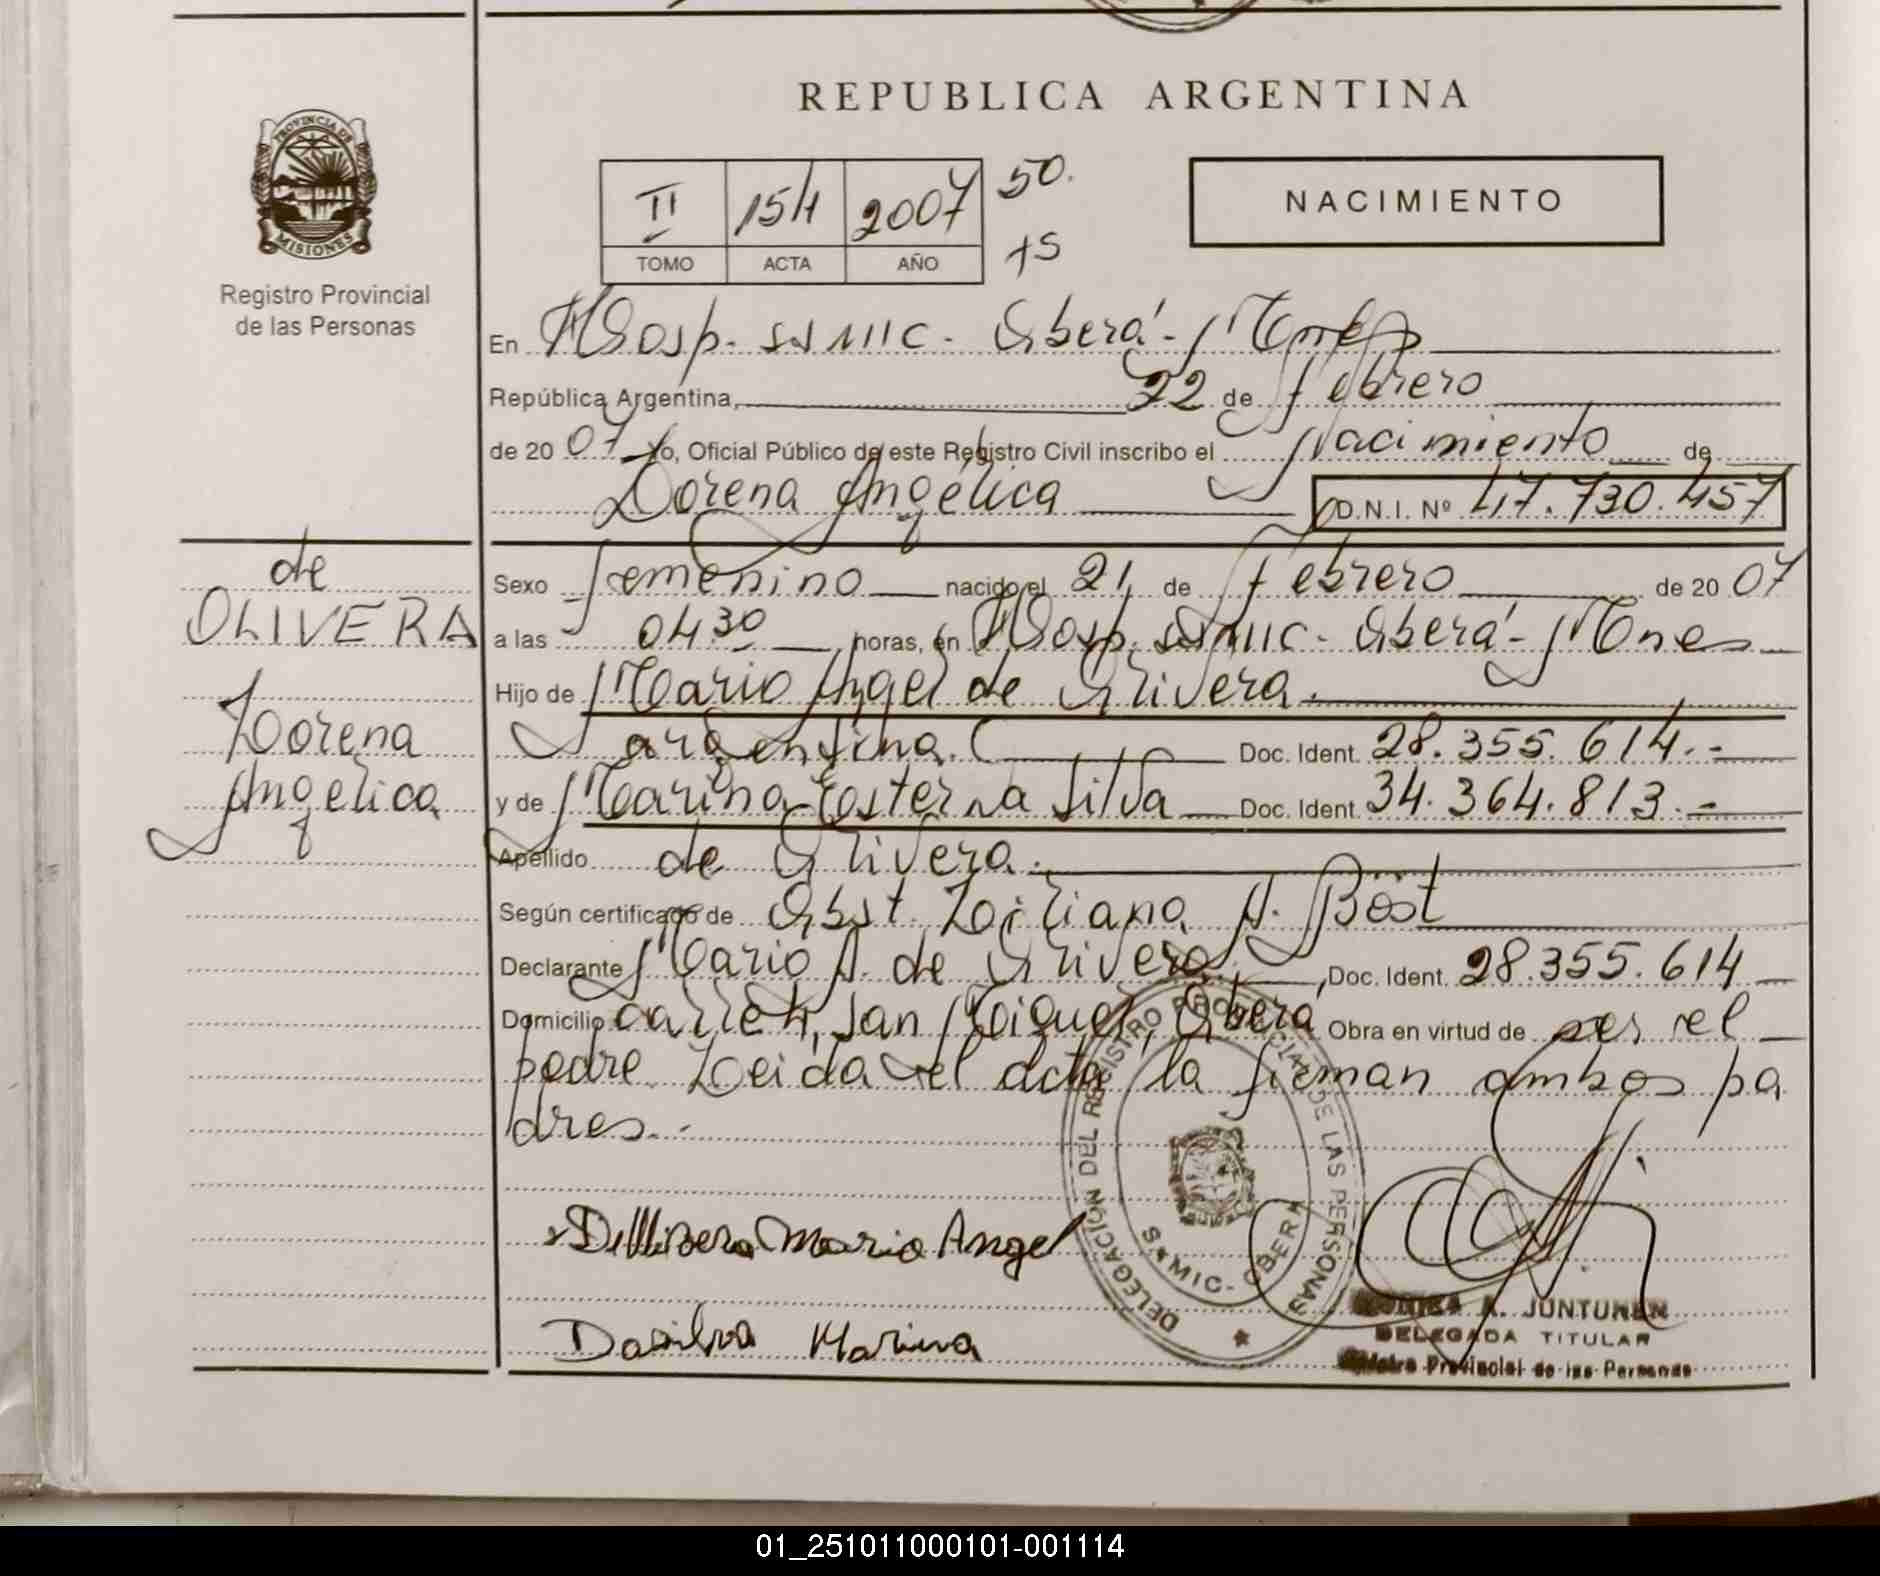 REPUBLICA ARGENTINA
PROVINCIA DE MISIONES
Registro Provincial
de las Personas
II 154 2007 50.
TOMO ACTA AÑO 15
NACIMIENTO
En Hosp. SAMIC - Oberá - Mnes
República Argentina, 22 de febrero
de 20 07 Yo, Oficial Público de este Registro Civil inscribo el Nacimiento de
Lorena Angélica D.N.I. Nº 47.730.457
de
OLIVERA
Lorena
Angélica
Sexo femenino nacido el 21 de febrero de 20 07
a las 04 30 horas, en Hosp. SAMIC - Oberá - Mnes
Hijo de Mario Angel de Olivera.
argentina. Doc. Ident. 28.355.614.-
y de Marina Ester Da Silva Doc. Ident. 34.364.813.-
Apellido de Olivera.
Según certificado de Obst. Liliana A. Bost
Declarante Mario A. de Olivera, Doc. Ident. 28.355.614
Domicilio San Miguel, Oberá Obra en virtud de ser el
padre. Leida el acta, la firman ambos pa
dres.-
Mario Angel
Dasilva Marina
DELEGACIÓN DEL REGISTRO PROVINCIAL DE LAS PERSONAS
SAMIC - OBERA
A. JUNTUNEN
DELEGADA TITULAR
Provincial de las Personas
01_251011000101-001114